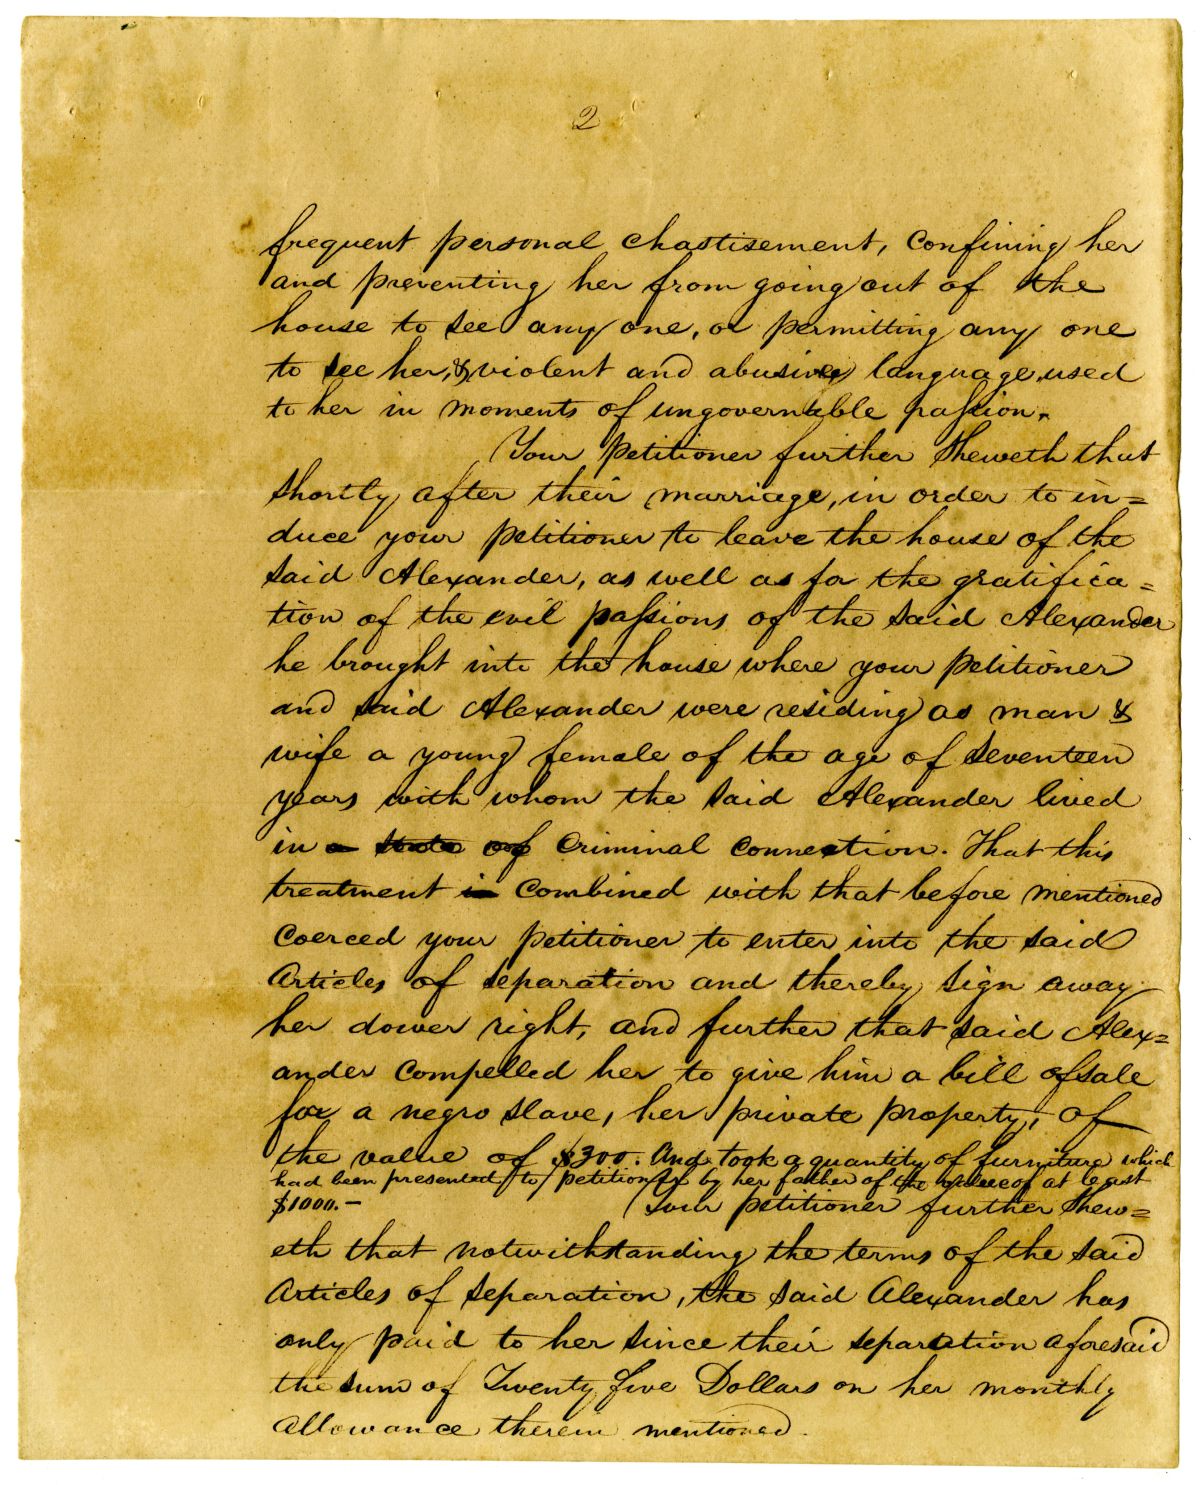 2
frequent personal chastisement, confining her
and preventing her from going out of the
house to see any one, or permitting any one
to see her, & violent and abusive language used
to her in moments of ungovernable passion.
Your Petitioner further sheweth that
shortly after their marriage, in order to in=
duce your petitioner to leave the house of the
said Alexander, as well as for the gratifica=
tion of the evil passions of the said Alexander
he brought into the house where your petitioner
and said Alexander were residing as man &
wife a young female of the age of seventeen
years with whom the said Alexander lived
in a state of criminal connection. That this
treatment is combined with that before mentioned
coerced your petitioner to enter into the said
Articles of separation and thereby sign away
her dower right, and further that said Alex=
ander compelled her to give him a bill of sale
for a negro slave, her private property, of
the value of $300. And took a quantity of furniture which
had been presented to petitioner by her father of the value of at least
$1000.—
Your petitioner further shew=
eth that notwithstanding the terms of the said
Articles of separation, the said Alexander has
only paid to her since their separation aforesaid
the sum of Twenty five Dollars on her monthly
allowance therein mentioned.